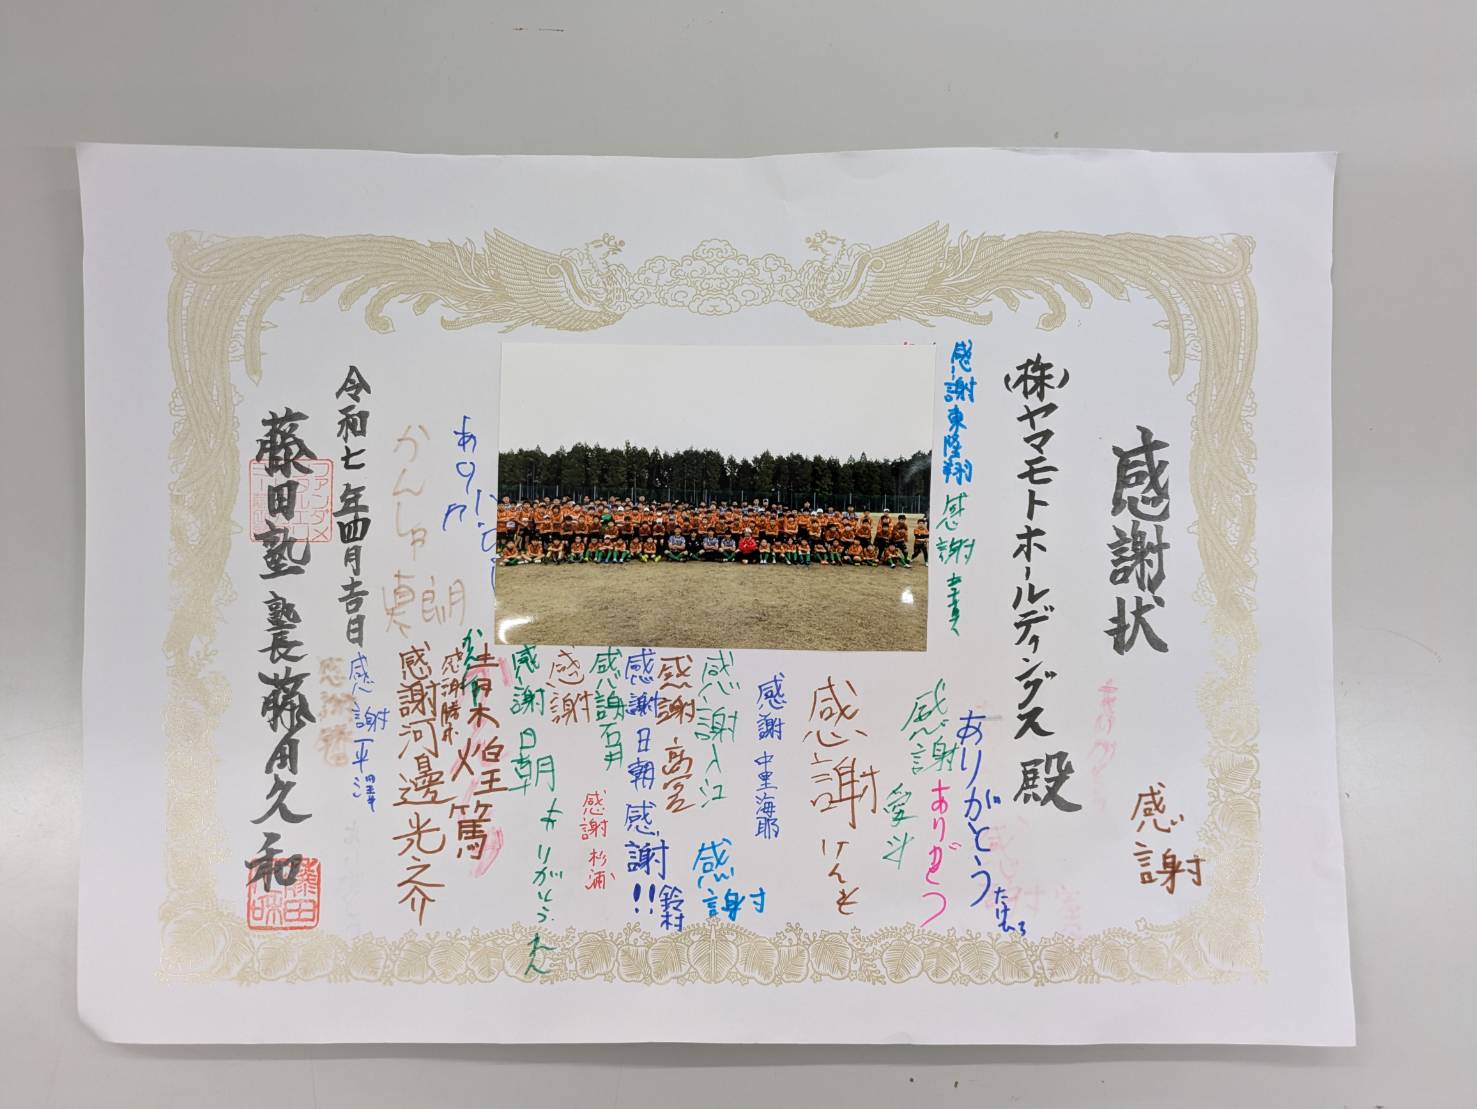 感謝状
感謝
(株)ヤマモトホールディングス 殿
ありがとう たけひろ
ありがとう
感謝 東 隆翔
感謝
感謝 愛斗
感謝 けんと
感謝 中里海那
感謝 入江
感謝
感謝 高宮
感謝 日朝
感謝!! 鈴村
感謝 石井
感謝 杉浦
感謝
感謝 日朝
ありがとう れん
青木煌篤
感謝 勝木
感謝 河邊光之介
かんしゃ 真朗
感謝 平澤
令和七年四月吉日
藤田塾 塾長 藤田久和